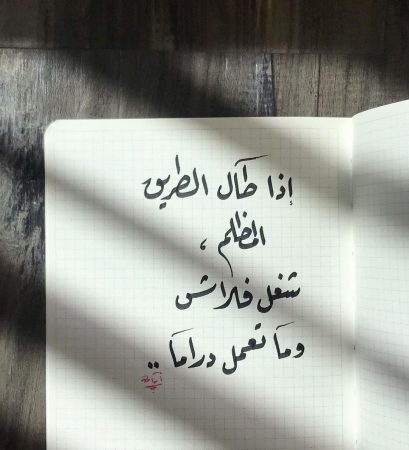 إذا طآل الطريق
المظلم ،
شغل فلاش
ومآ تعمل درامآ ..